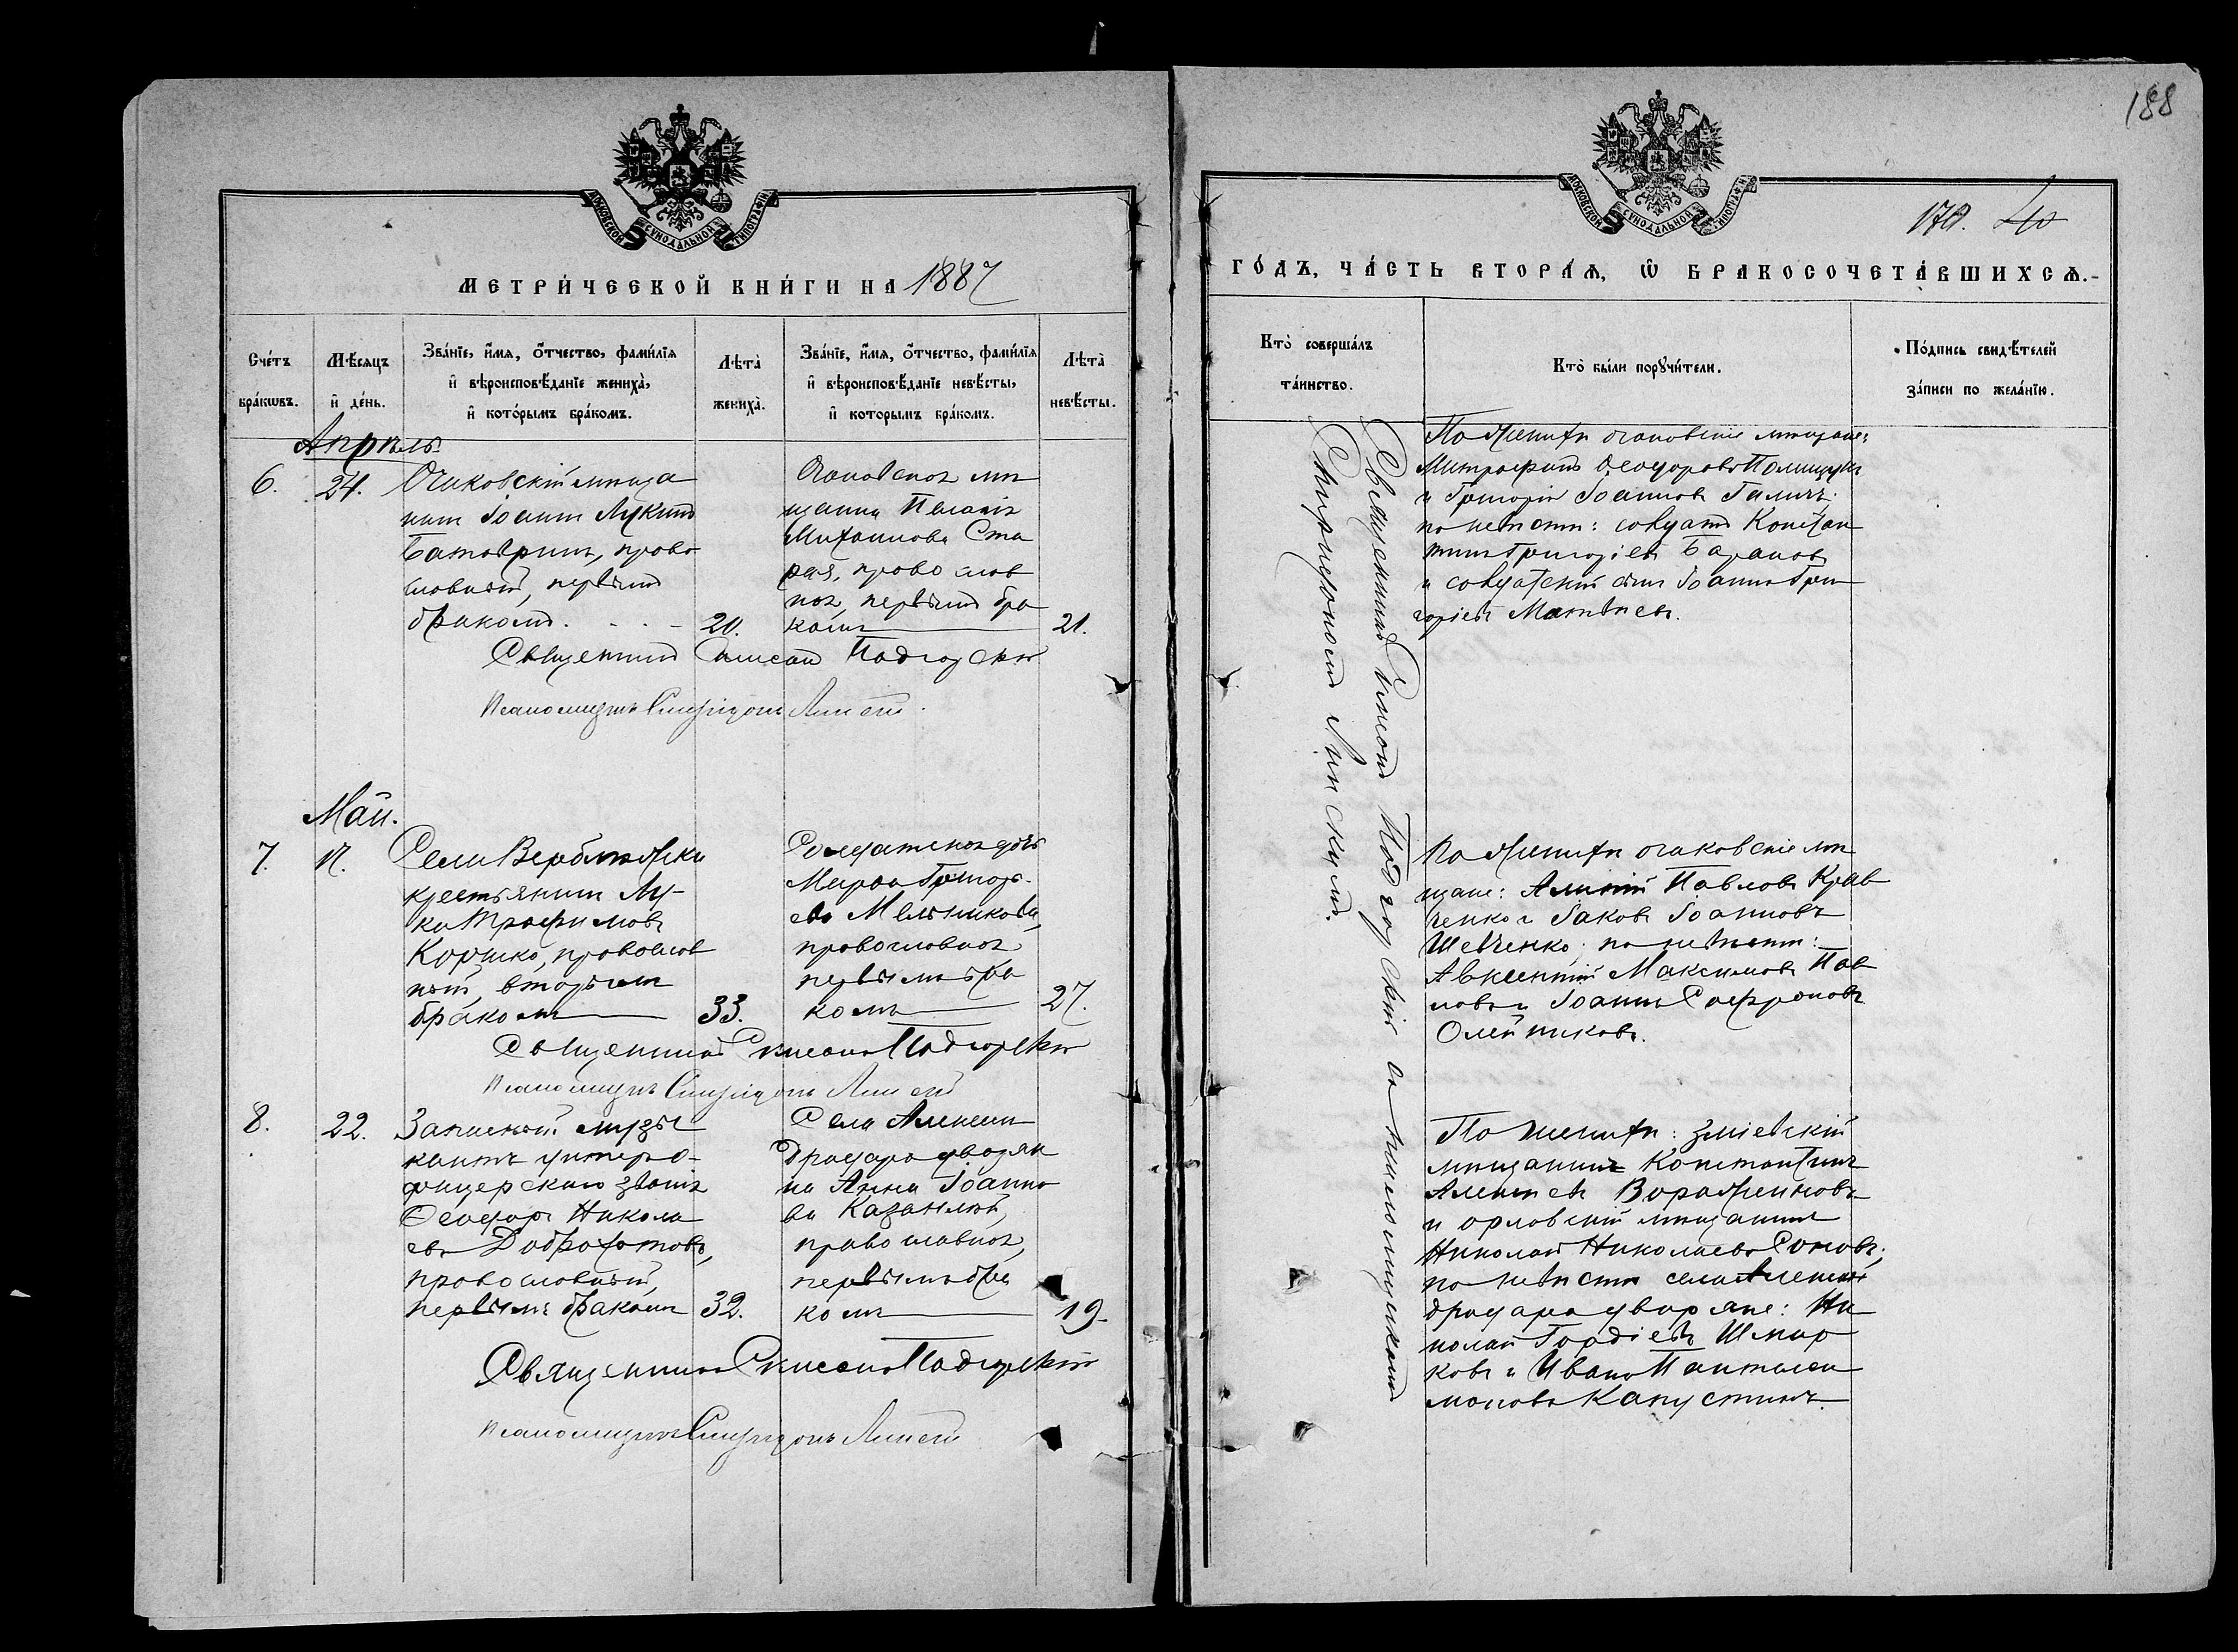 188
МОСКОВСКОЙ СѴНОДАЛЬНОЙ ТИПОГРАФІИ
МЕТРИ́ЧЕСКОЙ КНИ́ГИ НА 1887
Сче́тъ бра́кѡвъ.
Мѣ́сяцъ и҆ де́нь.
Зва́нїе, и҆́мѧ, ѻ҆́тчество, фами́лїѧ
и҆ вѣроисповѣ́данїе жениха̀,
и҆ кото́рымъ бра́комъ.
Лѣта̀ жениха̀.
Зва́нїе, и҆́мѧ, ѻ҆́тчество, фами́лїѧ
и҆ вѣроисповѣ́данїе невѣ́сты,
и҆ которымъ бра́комъ.
Лѣта̀ невѣ́сты.
Апрѣль
6.
24.
Очаковскій мѣща
нинъ Іоаннъ Лукинъ
право
славный, первымъ
бракомъ.
20.
Очаковская мѣ
щанка Пелагія
Михаилова Ста
рая, право слав
ная, первымъ бра
комъ
21.
Священникъ Симеонъ Подгорскій
Псаломщикъ Спиридонъ Линскій
Май.
7.
17.
Села Верблюжки
крестьянинъ Лу-
ка Трофимовъ
Коршко, православ
ный, вторымъ
бракомъ
33.
Солдатская дочь
Марѳа Григорі-
ева Мельникова,
православная
первымъ бра
комъ
27.
Священникъ Симеонъ Подгорскій
Псаломщикъ Спиридонъ Линскій
8.
22.
Запасный музы
кантъ унтеръ-о-
фицерскаго званія
Ѳеодоръ Никола
евъ Доброхотовъ,
православный,
первымъ бракомъ
32.
Села Алексѣи
Дридара дворян
ка Анна Іоанно
ва Казанлій,
православная,
первымъ бра
комъ
19.
Священникъ Симеонъ Подгорскій
Псаломщикъ Спиридонъ Линскій
МОСКОВСКОЙ СѴНОДАЛЬНОЙ ТИПОГРАФІИ
170. 40
ГО́ДЪ, ЧА́СТЬ ВТОРА́Ѧ, Ѡ҆ БРАКОСОЧЕТА́ВШИХСѦ.
Кто̀ соверша́лъ та́инство.
Кто̀ бы́ли порꙋчи́тели.
По́дпись свидѣ́телей
за́писи по жела́нїю.
Священникъ Симеонъ Подгорскій съ псаломщикомъ
Спиридономъ Линскимъ.
По женихѣ очаковскіе мѣщане:
Митрофанъ Ѳеодоровъ Полищукъ
и Григорій Іоанновъ Галичъ.
по невѣстѣ: солдатъ Констан
тинъ Григоріевъ Барановъ
и солдатскій сынъ Іоаннъ Гри
горіевъ Матвѣевъ.
По женихѣ очаковскіе мѣ
щане: Павловъ Крав
ченко и Іаковъ Іоанновъ
Шевченко; по невѣстѣ:
Авксентій Максимовъ Пав
ловъ и Іоаннъ Софроновъ
Олейниковъ.
По женихѣ: зміевскій
мѣщанинъ Константинъ
Алексѣевъ Вораженновъ
и орловскій мѣщанинъ
Николай Николаевъ Соновъ;
по невѣстѣ села Алексѣи
дридара дворяне: Ни
колай Гордіевъ Шмар
ковъ и Иванъ Пантелеи
моновъ Капустинъ.